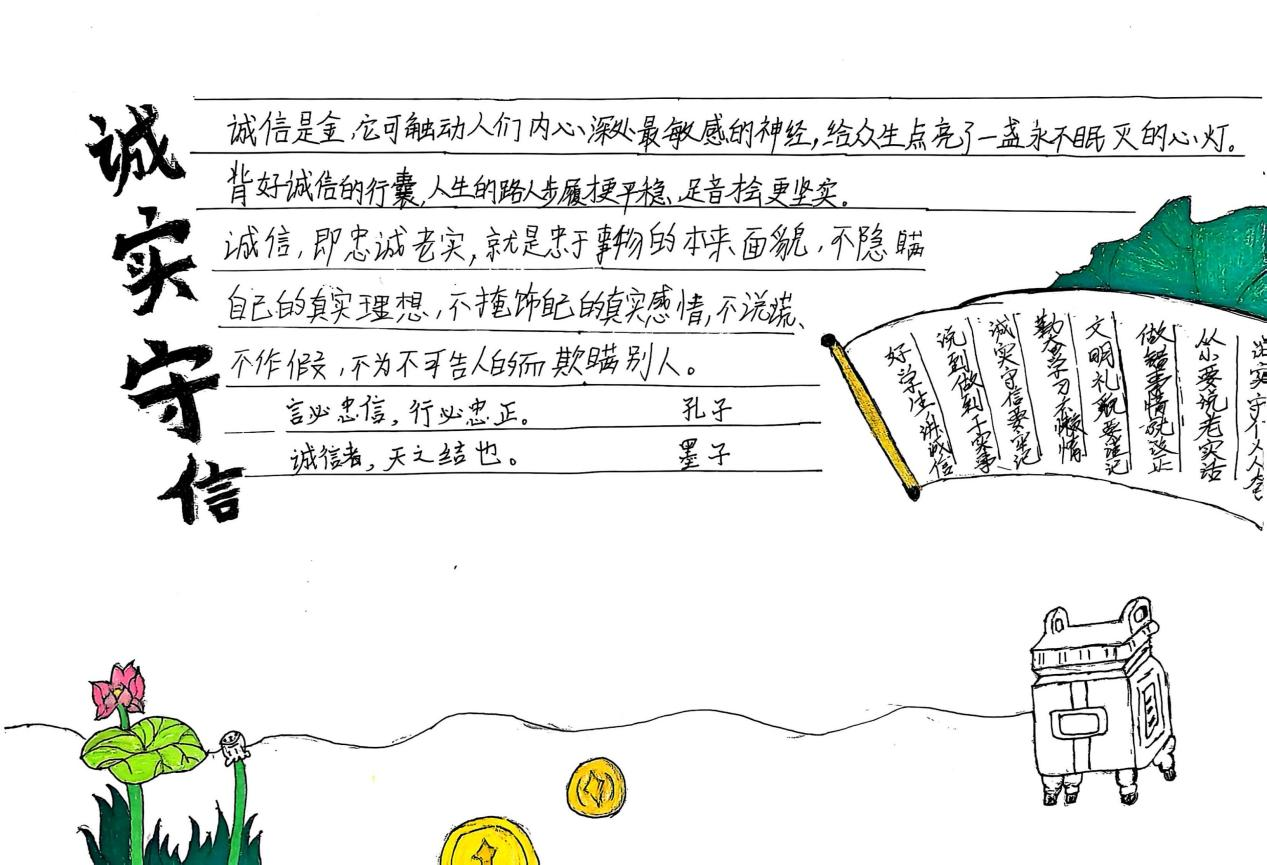 诚实守信
诚信是金，它可触动人们内心深处最敏感的神经，给众生点亮了一盏永不眠灭的心灯。
背好诚信的行囊，人生的路人步履才更平稳，足音才会更坚实。
诚信，即忠诚老实，就是忠于事物的本来面貌，不隐瞒
自己的真实理想，不掩饰自己的真实感情，不说谎、
不作假，不为不可告人的而欺瞒别人。
言必忠信，行必忠正。 孔子
诚信者，天之结也。 墨子
好学生讲诚信
说到做到干实事
诚实守信要牢记
勤奋学习不懒惰
文明礼貌要谨记
做错事情就改正
从小要说老实话
实守个人人夸